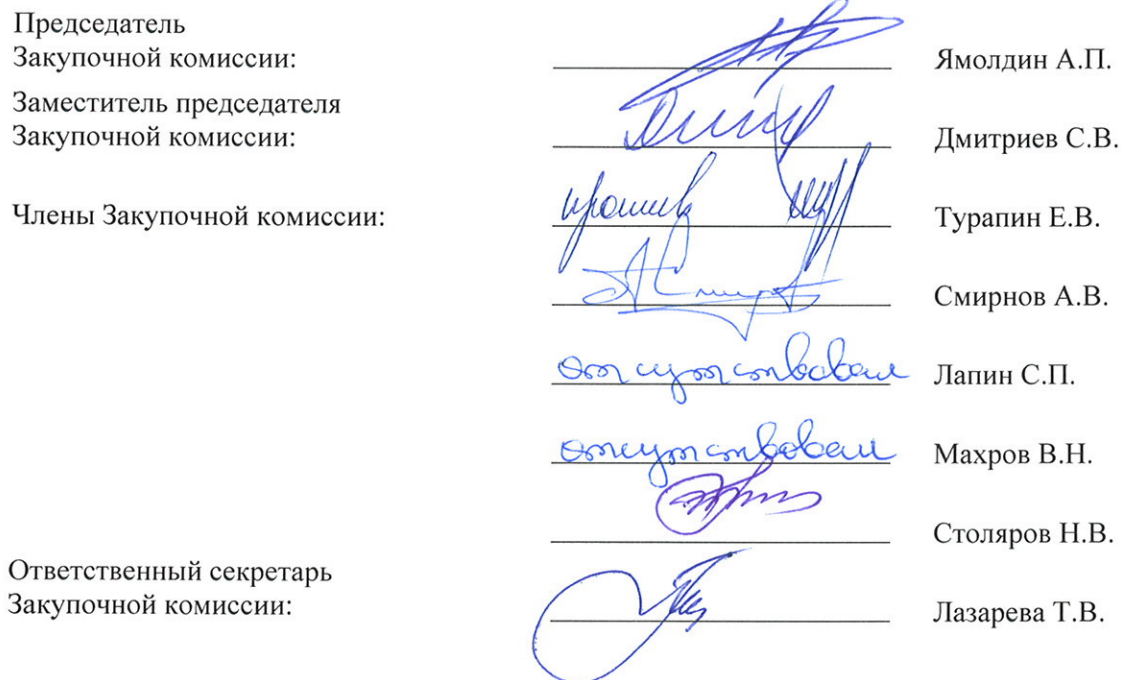 Председатель
Закупочной комиссии: Ямолдин А.П.
Заместитель председателя
Закупочной комиссии: Дмитриев С.В.
Члены Закупочной комиссии: против Турапин Е.В.
Смирнов А.В.
отсутствовал Лапин С.П.
отсутствовал Махров В.Н.
Столяров Н.В.
Ответственный секретарь
Закупочной комиссии: Лазарева Т.В.